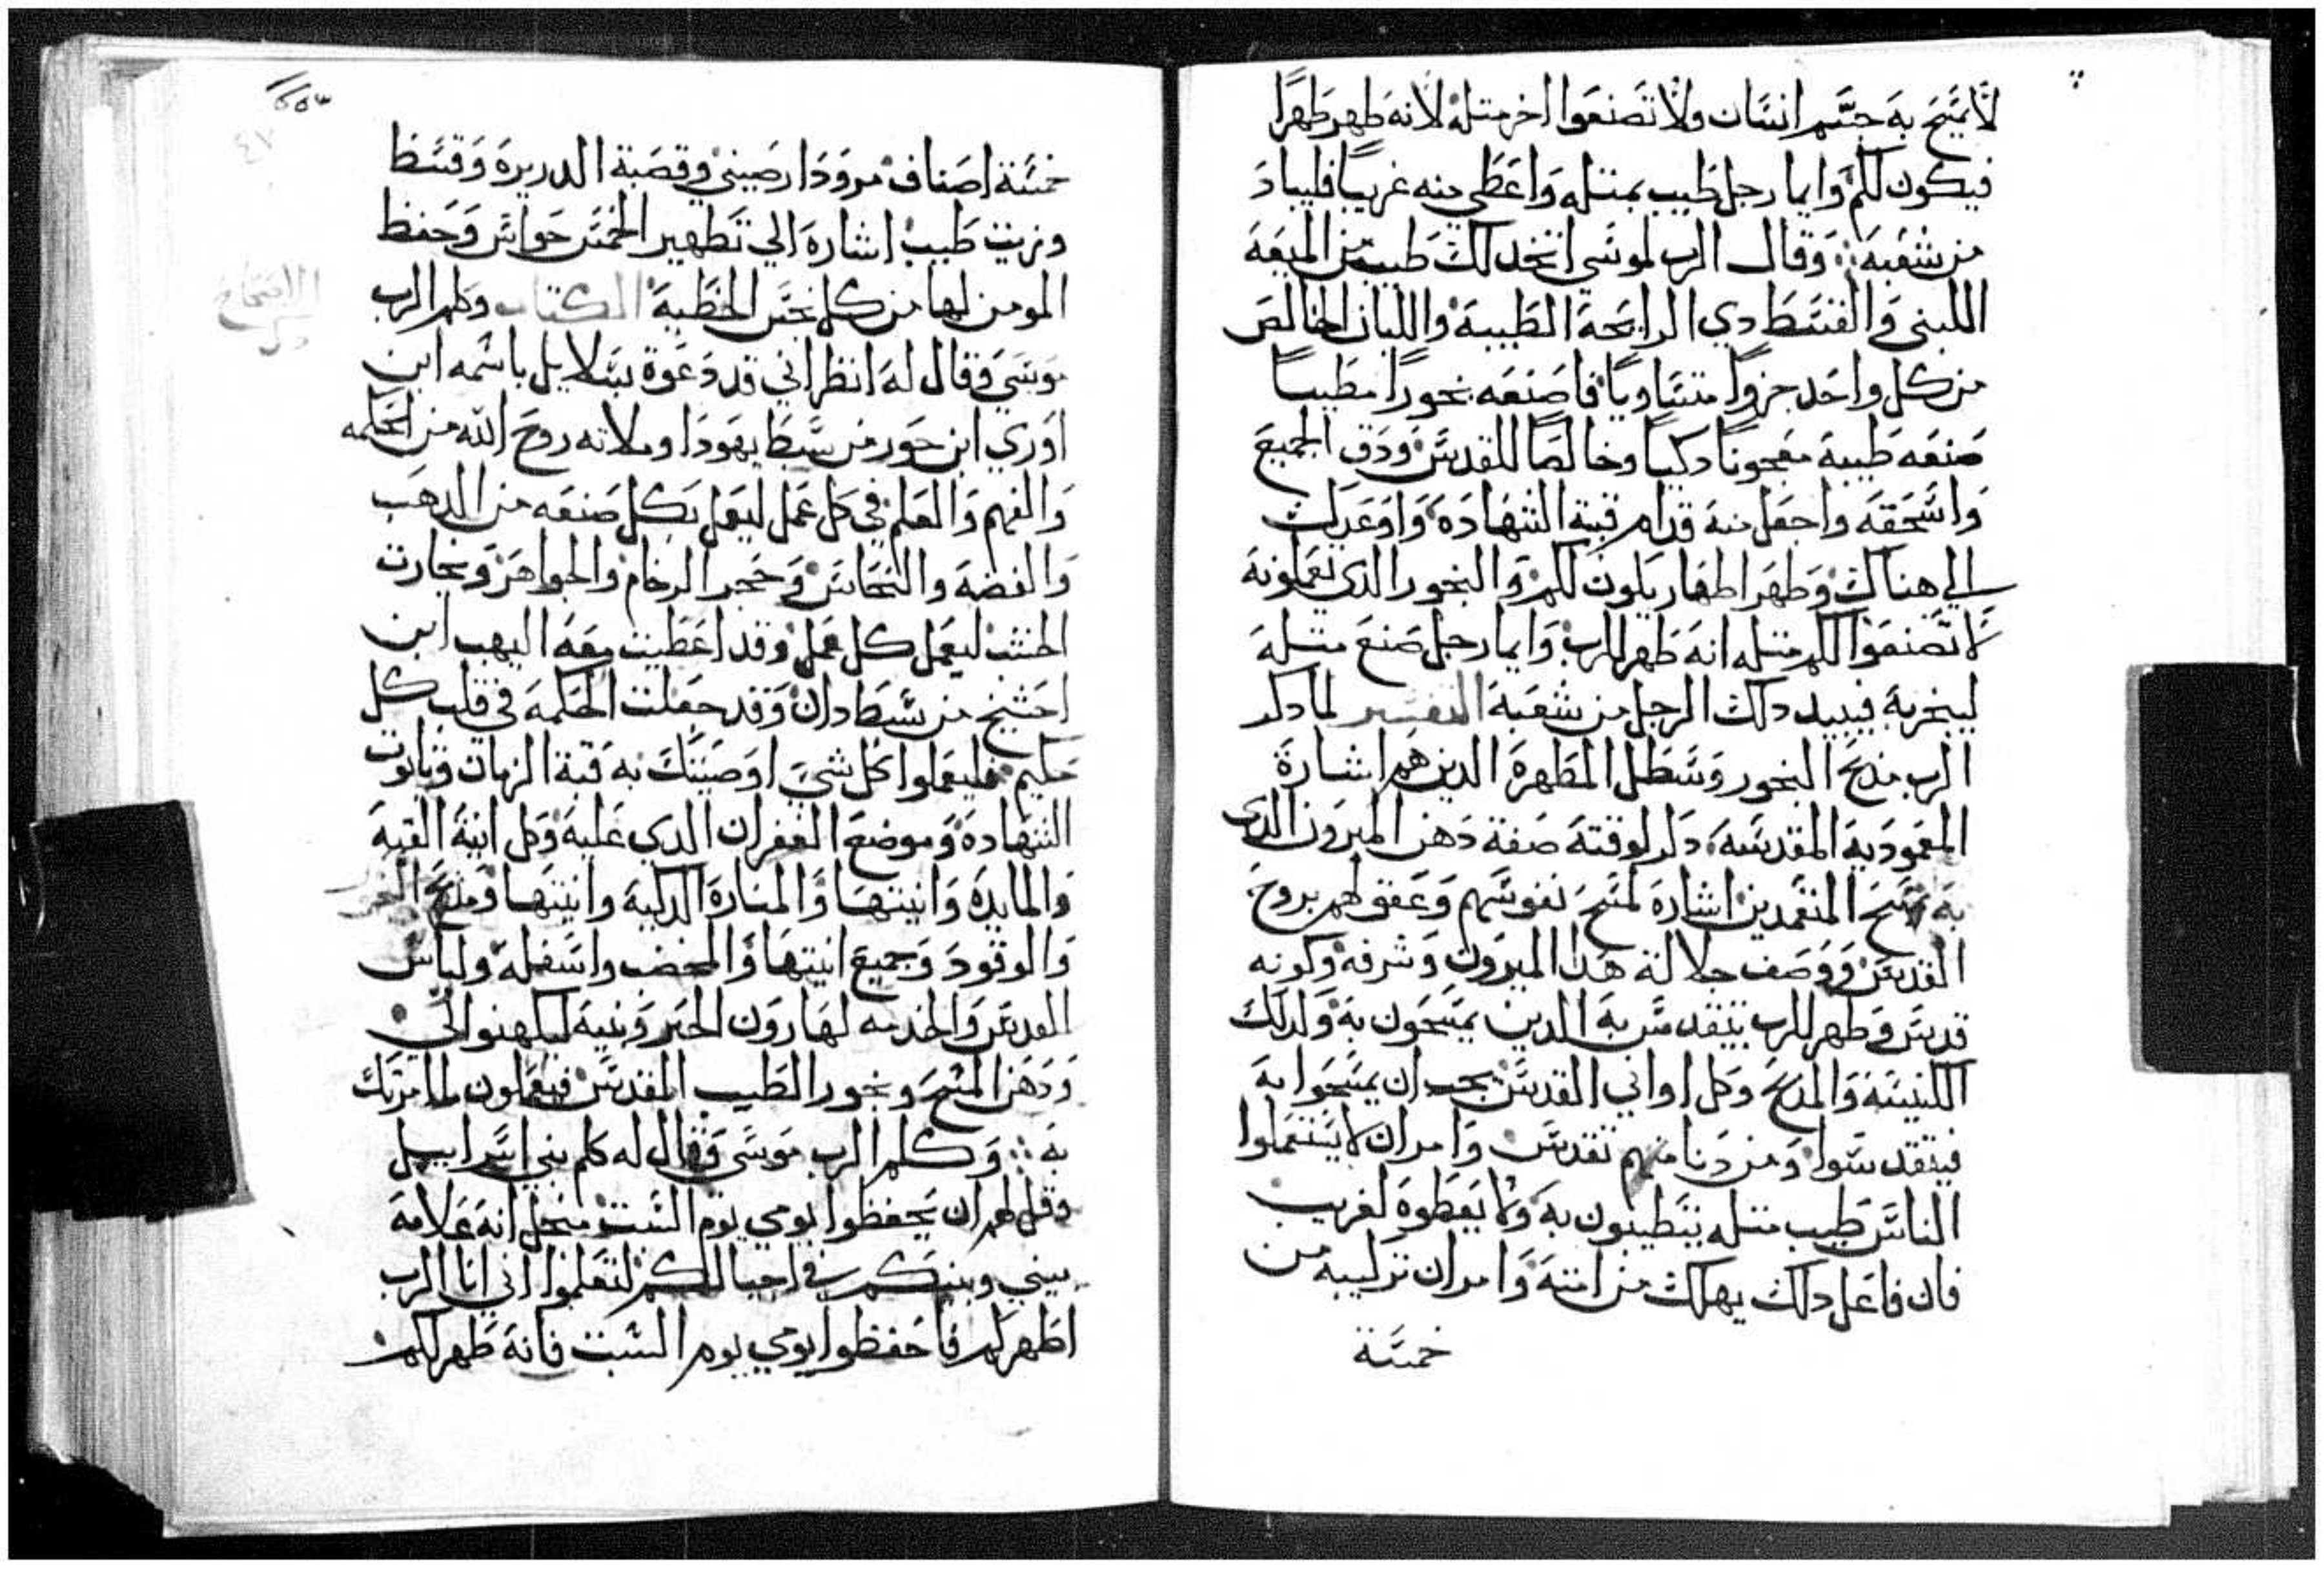 لا يمسح به جسم انسان ولا تصنعوا اخر مثله لانه طهر طهرا
فيكون لكم وايما رجل طيب بمثله واعطي منه غريبا فليباد
من شعبه وقال الرب لموسي اتخد لك طيب من الميعه
اللبنى والقسط دي الرايحة الطيبة واللبان الخالص
من كل واحد جزوا متساويا فاصنعه بخورا مطيبا
صنعه طيبة معجونا دكيا وخالصا للقدس ودق الجميع
واسحقه واجعل منه قدام قبة الشهاده واوعدك
الي هناك وطهر اطهار يكون لكم والبخور الدي تعملونه
لا تصنعوا لكم مثله انه طهر للرب وايما رجل صنع مثله
ليبخر به فيبيد دلك الرجل من شعبه التفسير لما دكر
الرب مدبح البخور وسطل المطهرة الدين هم اشارة
المعمودية المقدسه دكر لوقته صفة دهن الميرون الدي
به تمسح المتعمدين اشارة لمسح نفوسهم وعقولهم بروح
القدس ووصف جلالة هدا الميرون وشرفه وكونه
قدس وطهر للرب يتقدس به الدين يمسحون به ولدلك
الكنيسة والمدبح وكل اواني القدس يجب ان يمسحوا به
فيتقدسوا ومن دنا منهم تقدس وامر ان لا يستعملوا
الناس طيب مثله يتطيبون به ولا يعطوه لغريب
فان فاعل دلك يهلك من امته وامر ان تركيبه من
خمسة
٤٧
خمسة اصناف مر ودارصيني وقصبة الدريره وقسط
وزيت طيب اشاره الي تطهير الخمس حواس وحفظ
المومن لها من كل نجس الخطية الكتاب وكلم الرب
موسى وقال له انظر اني قد دعوة بسلايل باسمه ابن
اوري ابن حور من سبط يهودا وملاته روح الله من الحكمه
والفهم والعلم في كل عمل ليعمل بكل صنعه من الدهب
والفضه والنحاس وحجر الرخام والجواهر ونجارت
الخشب ليعمل كل عمل وقد اعطيت معه اليهب ابن
احشيخ من سبط دان وقد جعلت الحكمه في قلب كل
حكيم فليعملوا كل شي اوصيتك به قبة الزمان وتابوت
الشهادة وموضع الغفران الدي عليه وكل انية القبة
والمايده وانيتها والمنارة الدكية وانيتها ومدبح البخور
والوقود وجميع انيتها والمخضب واسفله ولباس
القدس والخدمه لهارون الحبر وبنيه ليكهنوا لي
ودهن المسح وبخور الطيب المقدس فيعملون كما امرتك
به وكلم الرب موسى وقال له كلم بني اسراييل
وقل لهم ان يحفظوا يومي يوم السبت من اجل انه علامة
بيني وبينكم في احيالكم لتعلموا اني انا الرب
اطهركم فاحفظوا يومي يوم السبت فانه طهر لكم